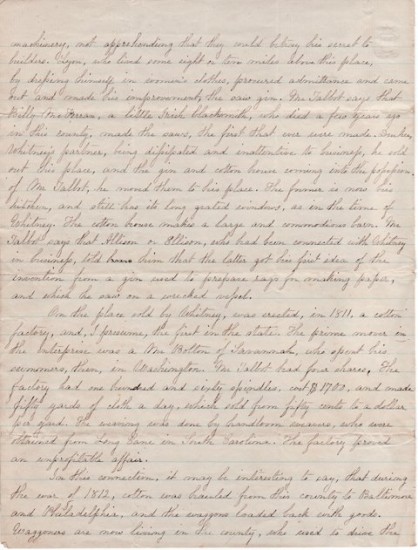 machinery, not apprehending that they could betray his secret to
builders. Lyon, who lived some eight or ten miles above this place,
by dressing himself in women's clothes, procured admittance and came
out and made his improvements the saw gin. Mr Talbot says that
Billy McFerran, a little Irish blacksmith, who died a few years ago
in this county, made the saws, the first that ever were made.
Whitney's partner, being dissipated and inattentive to business, he sold
out this place, and the gin and cotton house coming into the possession
of Mr Talbot, he moved them to his place. The former is now his
kitchen, and still has its long grated windows, as in the time of
Whitney. The cotton house makes a large and commodious barn. Mr
Talbot says that Allison or Ellison, who had been connected with Whitney
in business, told him that the latter got his first idea of the
invention from a gin used to prepare rags for making paper,
and which he saw on a wrecked vessel.
On the place sold by Whitney, was erected, in 1811, a cotton
factory, and, I presume, the first in the state. The prime mover in
the enterprise was a Wm Bolton of Savannah, who spent his
summers, then, in Washington. Mr Talbot had four shares. The
factory had one hundred and sixty spindles, cost $1702, and made
fifty yards of cloth a day, which sold from fifty cents to a dollar
per yard. The weaving was done by handloom weavers, who were
obtained from Long Cane in South Carolina. The factory proved
an unprofitable affair.
In this connection, it may be interesting to say, that during
the war of 1812, cotton was hauled from this county to Baltimore
and Philadelphia, and the waggons loaded back with goods.
Waggoners are now living in the county, who used to drive the